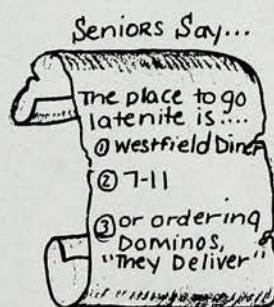 Seniors Say...
The place to go
latenite is....
① Westfield Diner
② 7-11
③ or ordering
Dominos,
"They Deliver"